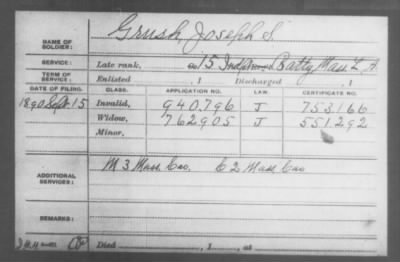 NAME OF SOLDIER: Grush, Joseph S.
SERVICE: Late rank, 15 Batty Mass L A
TERM OF SERVICE: Enlisted , 1 Discharged , 1
DATE OF FILING. CLASS. APPLICATION NO. LAW. CERTIFICATE NO.
1890 Sept 15 Invalid, 940,796 J 753166
Widow, 762905 J 551,292
Minor,
ADDITIONAL SERVICES: M 3 Mass Cav. C 2 Mass Cav
REMARKS:
Died , 1 , at